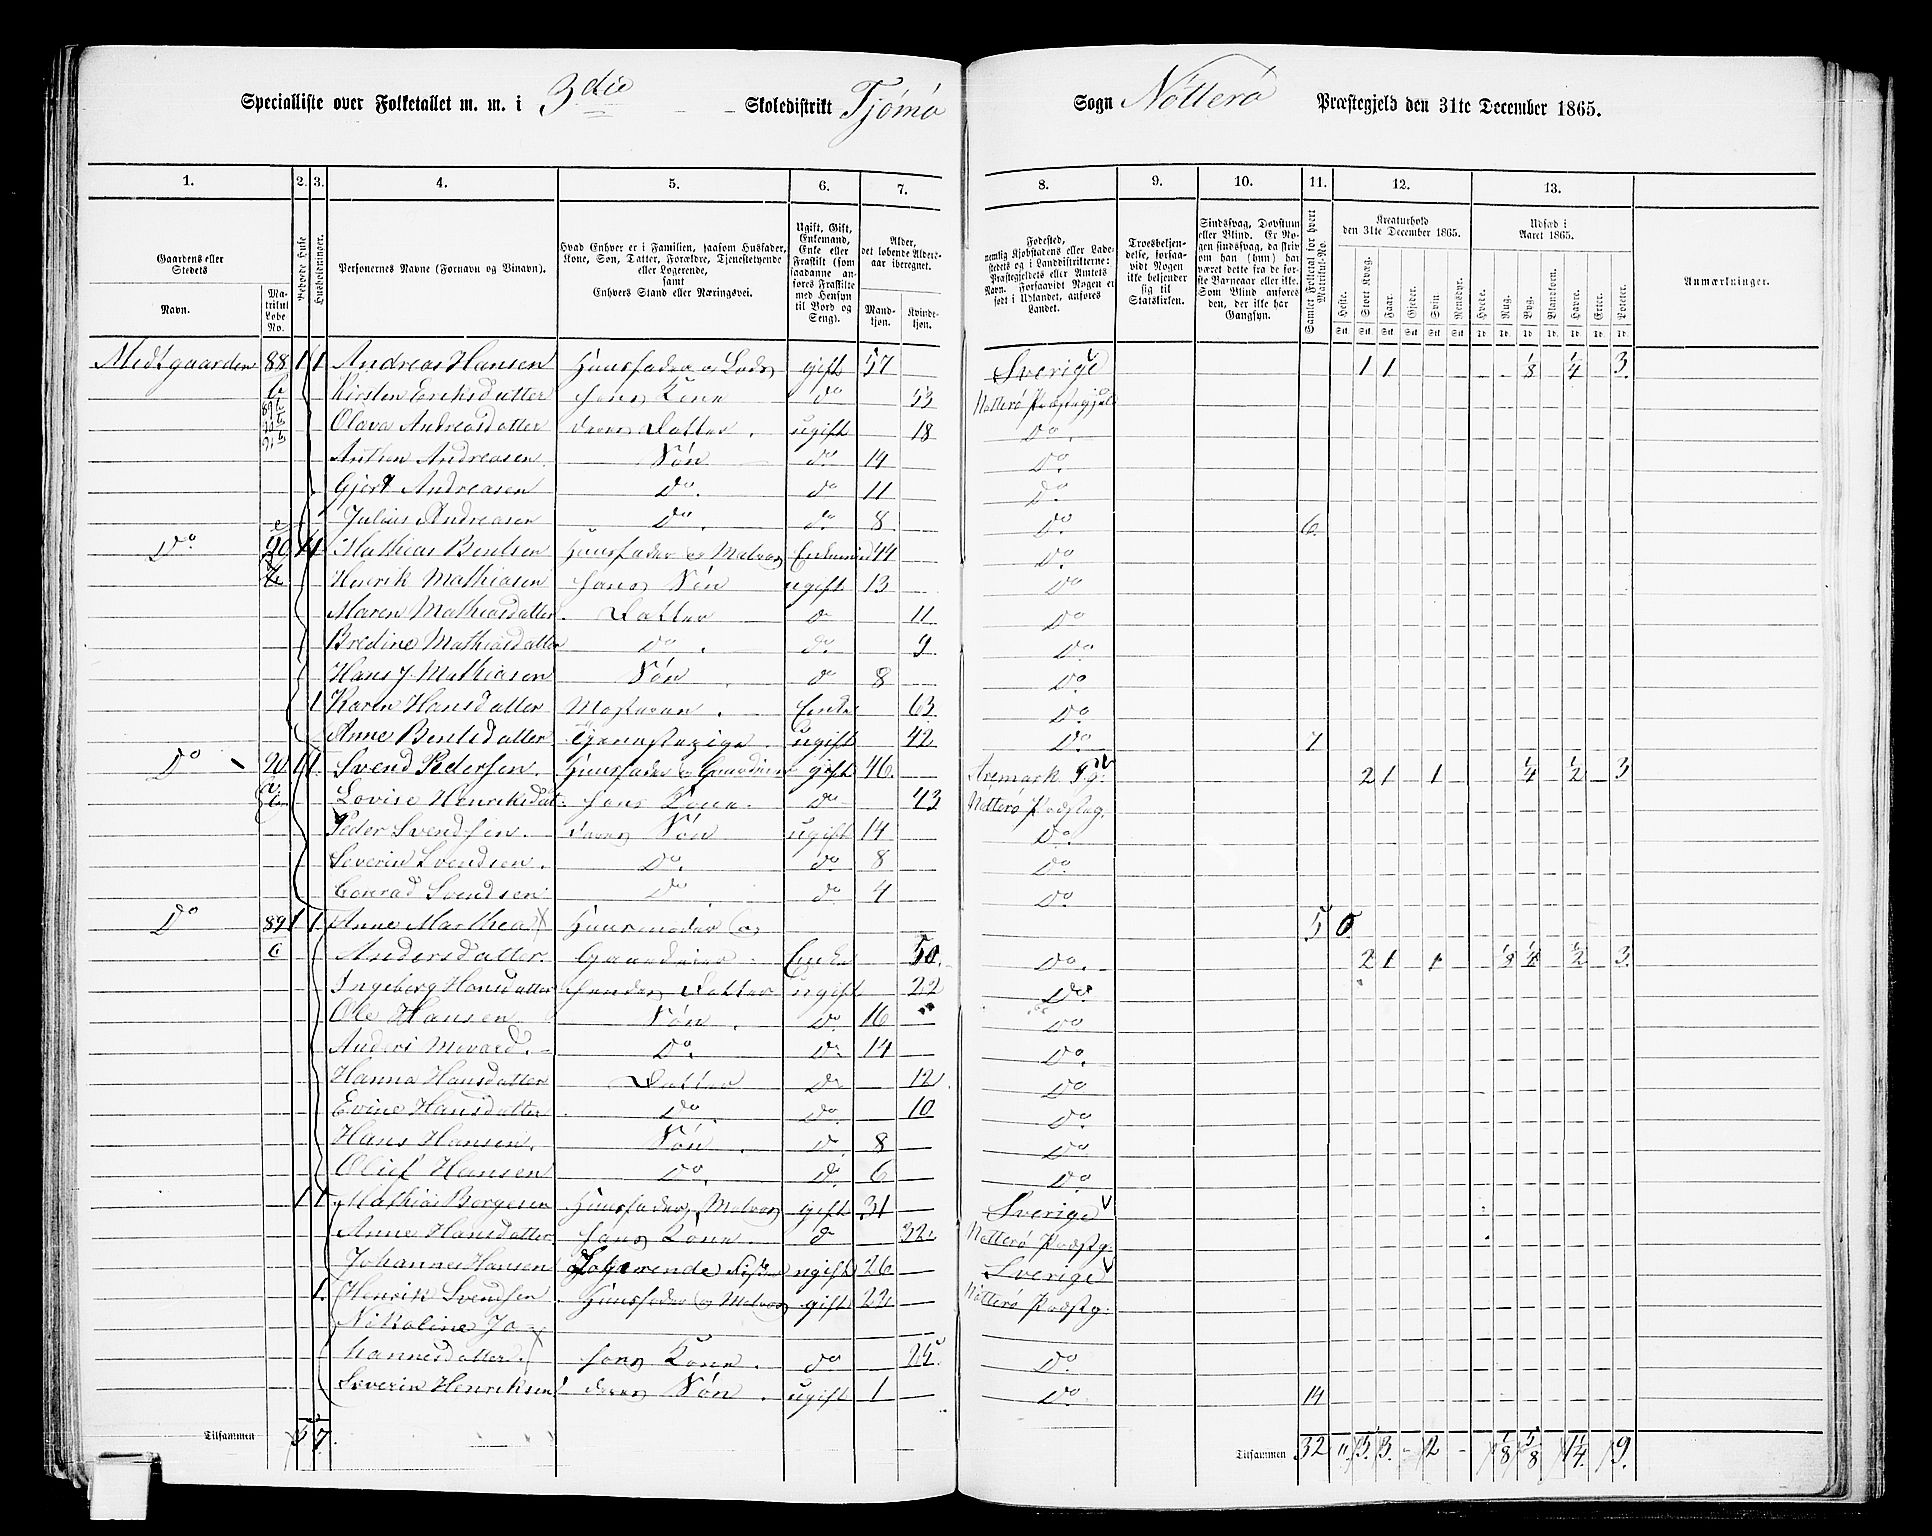 Specialliste over Folketallet m. m. i 3die Skoledistrikt Tjömö Sogn Nötterö Præstegjeld den 31te December 1865.
1. 2. 3. 4. 5. 6. 7. 8. 9. 10. 11. 12. 13.
Gaardens eller Stedets
Navn.
Matrikul Løbe No.
Beboede Huse
Husholdninger.
Personernes Navne (Fornavn og Vinavn).
Hvad Enhver er i Familien, saasom Husfader, Kone, Søn, Datter, Forældre, Tjenestetyende eller Logerende, samt Enhvers Stand eller Næringsvei.
Ugift, Gift, Enkemand, Enke eller Fraskilt (som saadanne anføres Fraskilte med Hensyn til Bord og Seng).
Alder, det løbende Alders-aar iberegnet.
Mandkjøn.
Kvindekjøn.
Fødested,
Troesbekjendelse, forsaavidt Nogen ikke bekjender sig til Statskirken.
Sindssvag, Døvstum eller Blind.
Samlet Folketal for hvert Matrikul-No.
Kreaturhold den 31te December 1865.
Heste. Stort Kvæg. Faar. Gjeder. Svin. Rensdyr.
Udsæd i Aaret 1865.
Hvede. Rug. Byg. Blandkorn. Havre. Erter. Poteter.
Anmærkninger.
Midtgaarden 88 1 1 Andreas Hansen Huusfader og Lods gift 57 Sverige 1 1 1/8 1/4 3
Kirsten Eriksdatter hans Kone do 53 Nötterö Præstegjeld
Olava Andreasdatter deres Datter ugift 18 Do
Anthon Andreasen Søn do 14 Do
Gjert Andreasen Do do 11 Do
Julius Andreasen Do do 8 Do 6
Do 90 1 1 Mathias Bentsen Huusfader og Matros Enkemand 44 Do
Henrik Mathiasen hans Søn ugift 13 Do
Maren Mathiasdatter Datter do 11 Do
Bredine Mathiasdatter Do do 9 Do
Hans J. Mathiasen Søn do 8 Do
1 Karen Hansdatter Enke 63 Do
Anne Bentsdatter Tjenestepige ugift 42 Do 7
Do 90 1 1 Svend Pedersen Huusfader og Gaardeier gift 46 Aremark Pg. 2 1 1 1/4 1/2 3
Lovise Henriksdat. hans Kone do 43 Nötterö Præstg.
Peder Svendsen deres Søn ugift 14 Do
Severin Svendsen Do do 8 Do
Conrad Svendsen Do do 4 Do
Do 89 1 1 Anne Marthea Huusmoder og 5
Andersdatter Gaardeier Enke 50 Do 2 1 1 1/8 1/4 1/2 3
Ingeborg Hansdatter hendes Datter ugift 22 Do
Ole Hansen Søn do 16 Do
Anders Do do 14 Do
Hanna Hansdatter Datter do 12 Do
Evine Hansdatter Do do 10 Do
Hans Hansen Søn do 8 Do
Oluf Hansen Do do 6 Do
1 1 Mathias Borgesen Huusfader, Matros gift 31 Sverige
Anne Hansdatter hans Kone do 32 Nötterö Præstg.
Johannes Hansen Logerende ugift 26 Sverige
1 Henrik Svendsen Huusfader og Matros gift 22 Nötterö Præstg.
Nikoline Jo
hannesdatter hans Kone do 25 Do
Severin Henriksen deres Søn ugift 1 Do 14
Tilsammen 5 7 Tilsammen 32 " 5 3 - 2 - 1/8 5/8 1 1/4 9